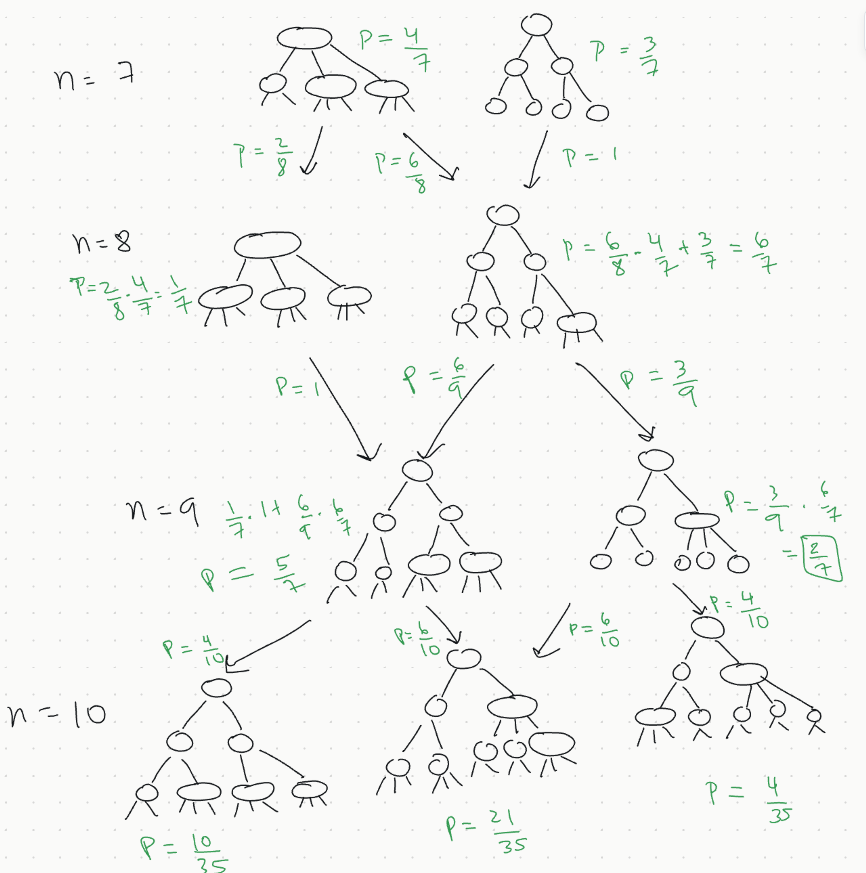 n = 7
P = 4/7
P = 3/7
P = 2/8
P = 6/8
P = 1
n = 8
P = 2/8 · 4/7 = 1/7
P = 6/8 · 4/7 + 3/7 = 6/7
P = 1
P = 6/9
P = 3/9
n = 9
1/7 · 1 + 6/9 · 6/7
P = 5/7
P = 3/9 · 6/7
= 2/7
P = 4/10
P = 6/10
P = 6/10
P = 4/10
n = 10
P = 10/35
P = 21/35
P = 4/35